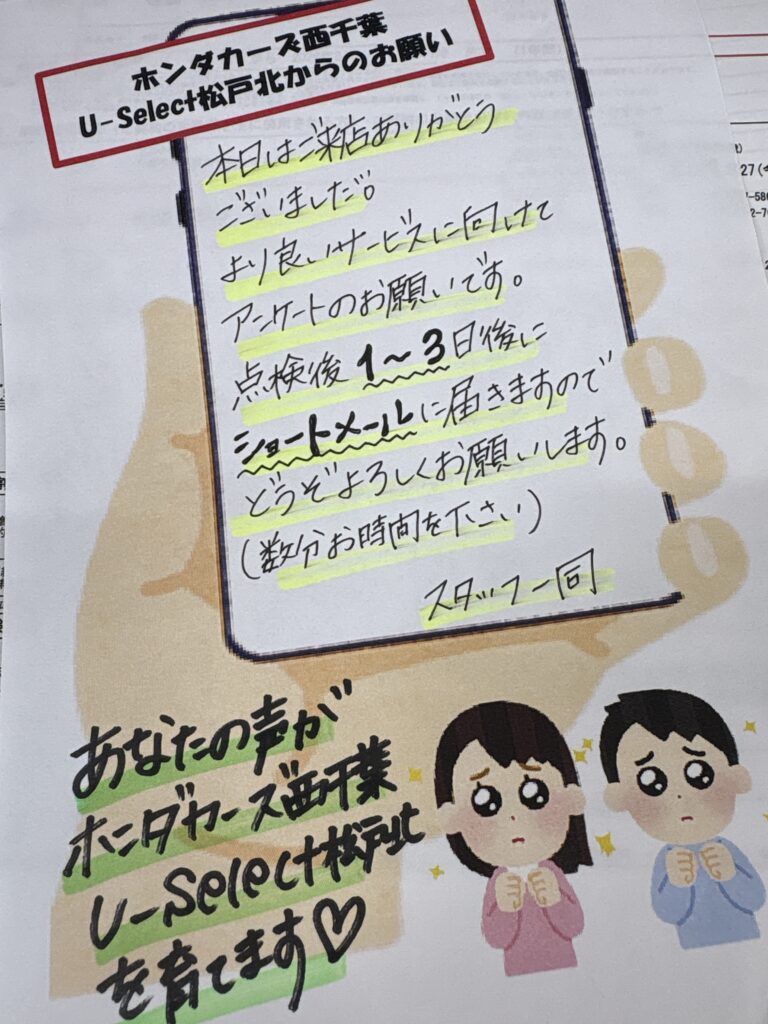 ホンダカーズ西千葉
U-Select松戸北からのお願い
本日はご来店ありがとう
ございました。
より良いサービスに向けて
アンケートのお願いです。
点検後1～3日後に
ショートメールに届きますので
どうぞよろしくお願いします。
(数分お時間を下さい)
スタッフ一同
あなたの声が
ホンダカーズ西千葉
U-Select松戸北
を育てます♡
27